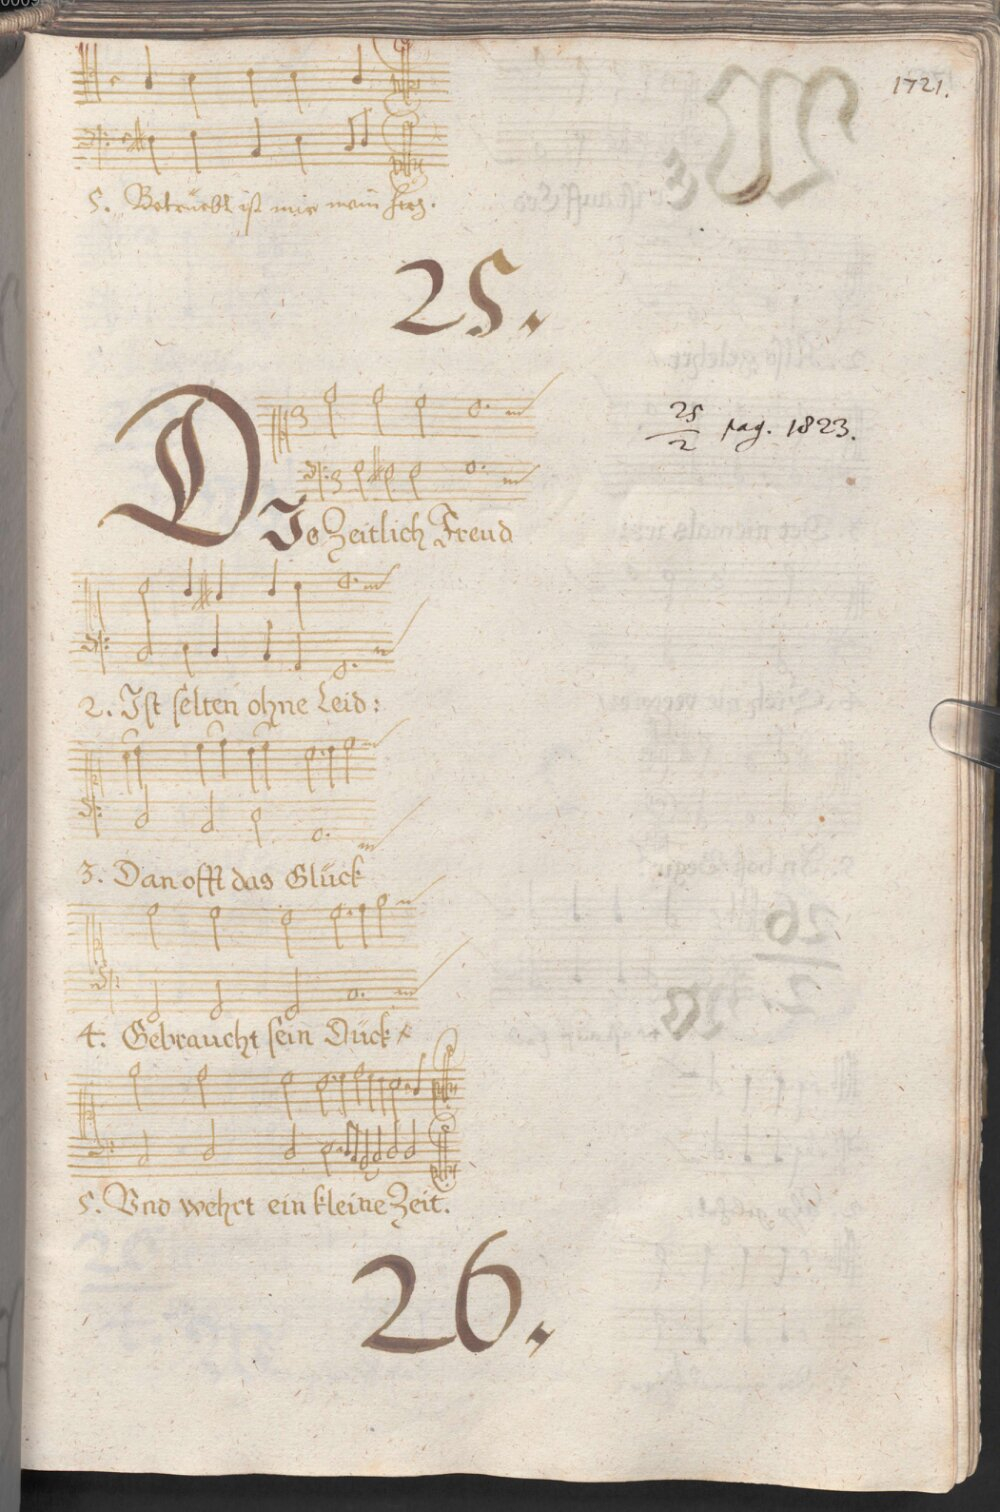 1721.
5. Betrüebt ist mir mein Hertz.
25.
25/2 pag. 1823.
DIe Zeitlich Freud
2. Ist selten ohne Leid:
3. Dan offt das Glück
4. Gebraucht sein Dück
5. Vnd wehrt ein kleine Zeit.
26.